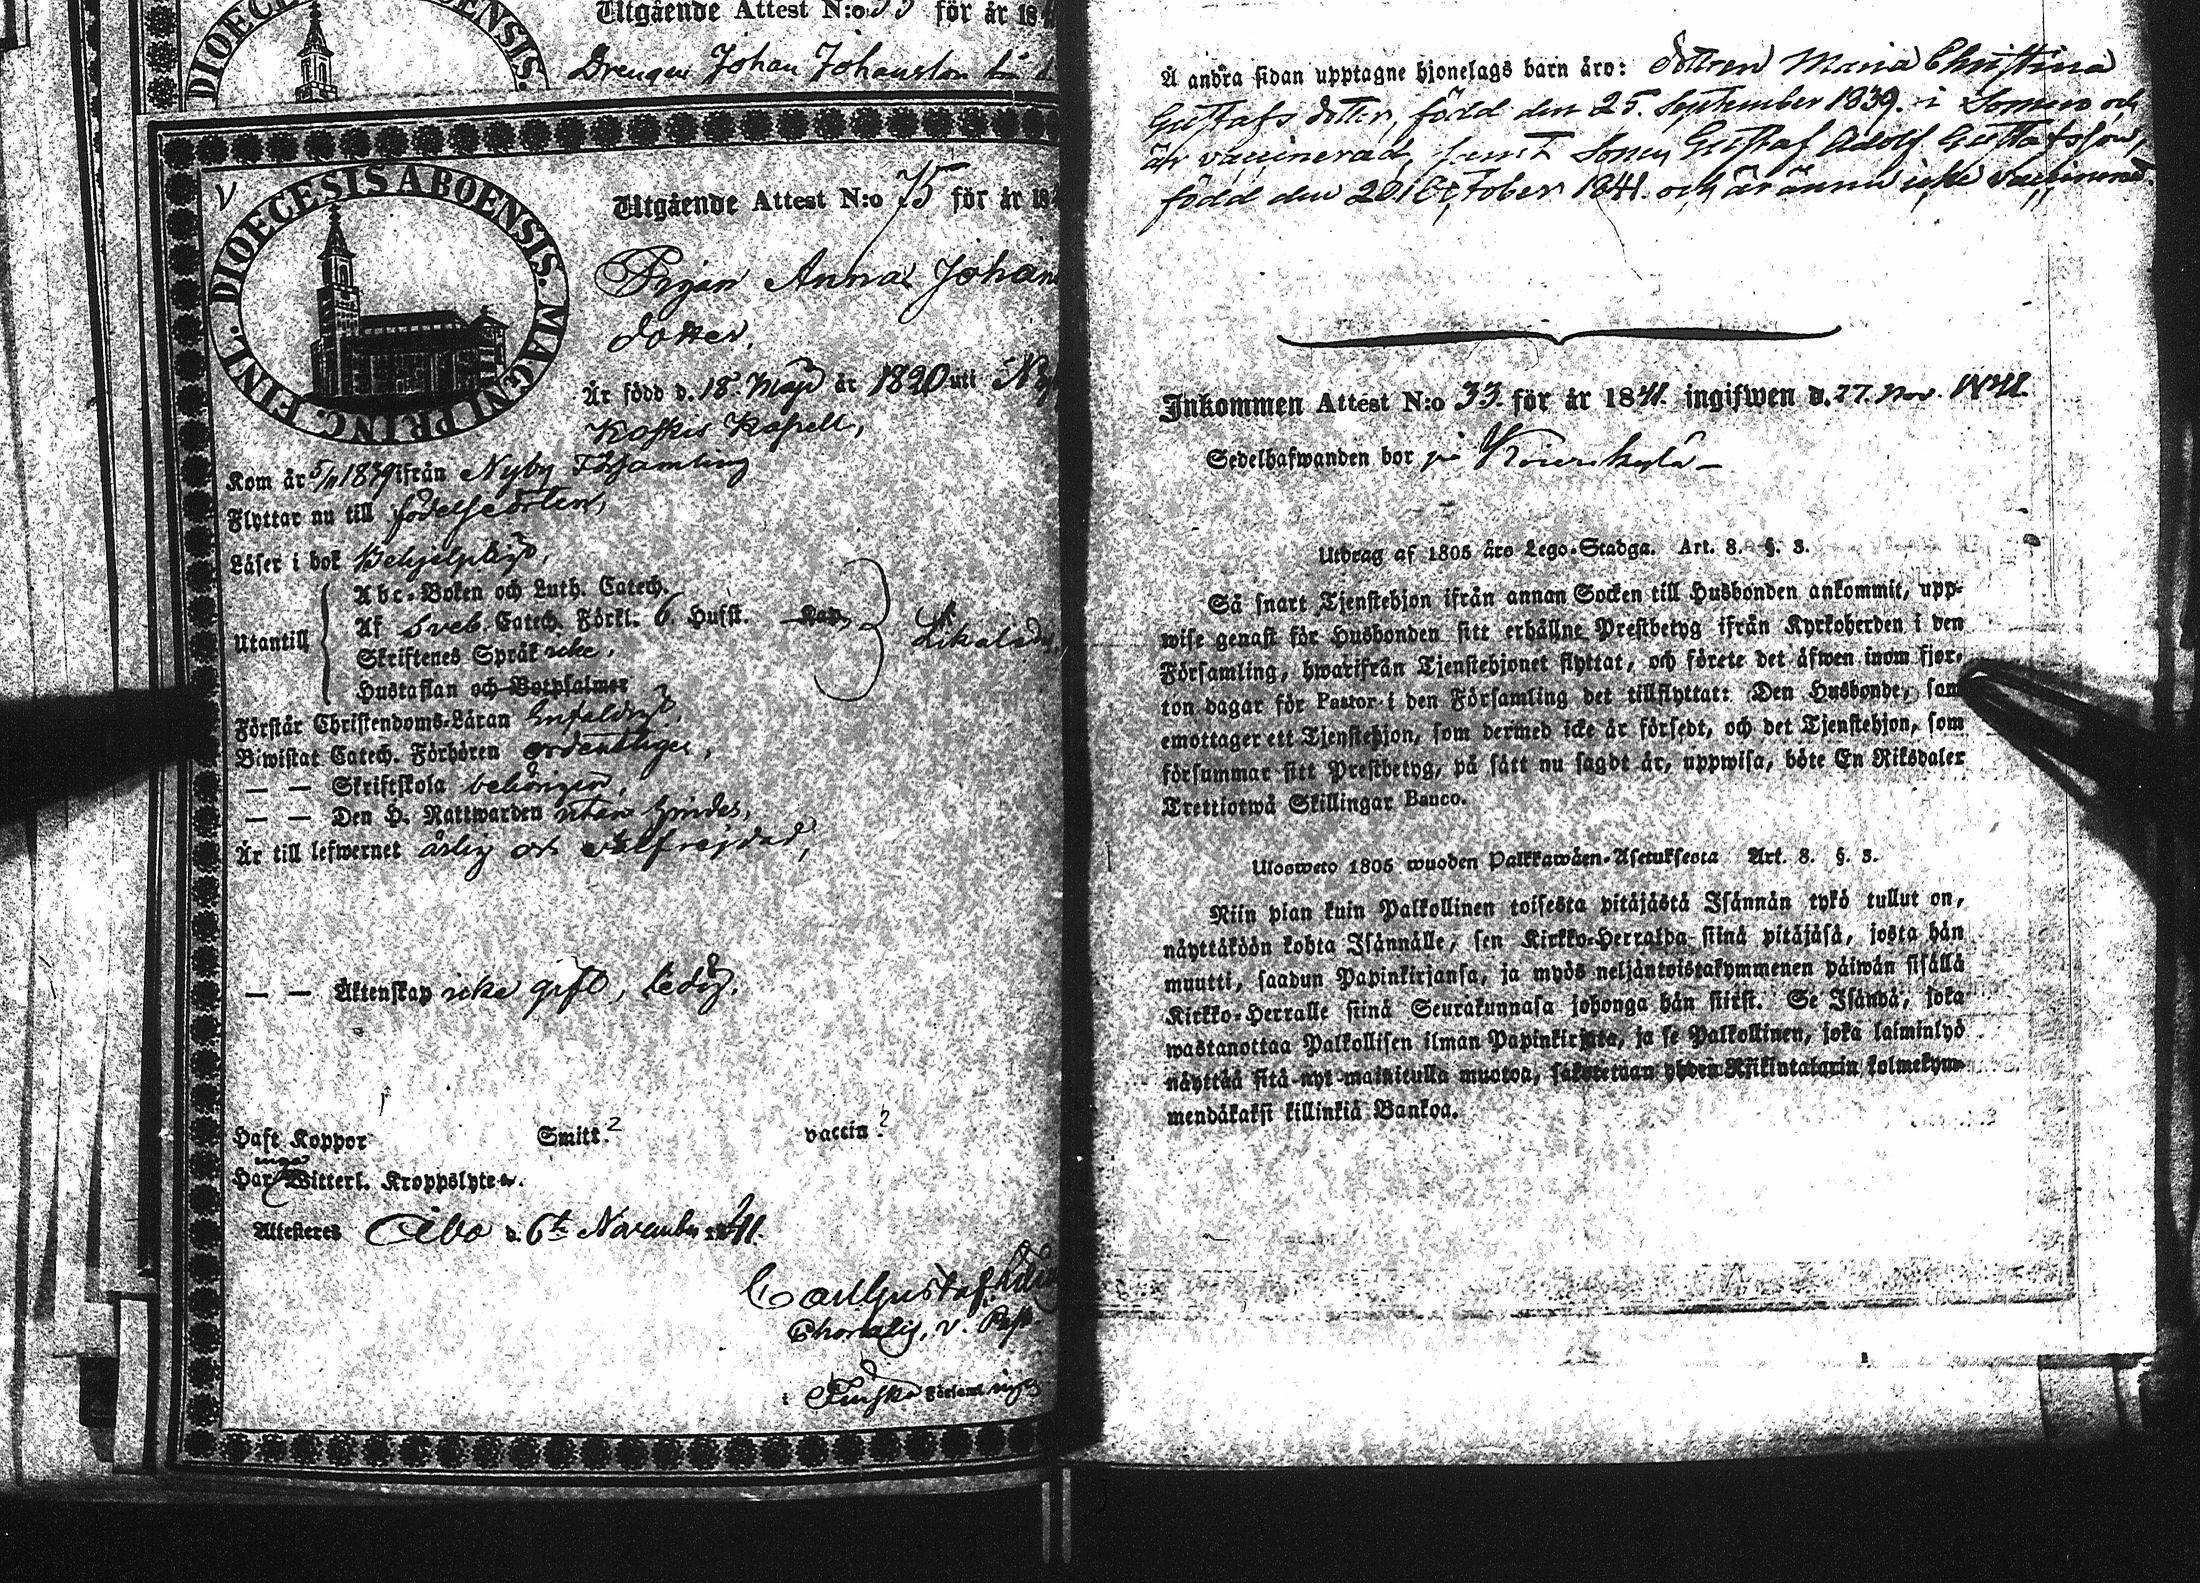 DIOECESIS ABOENSIS.
Utgående Attest N:o 33 för år 18
Drengen Johan Johansson
DIOECESIS ABOENSIS. MAGNI PRINC. FINL.
Utgående Attest N:o 75 för år 18
Pigan Anna Johans
dotter,
Är född d. 18 Maji år 1820 uti
Koskis Kapell,
Kom år 5/11 1839 ifrån Nyby Församling
Flyttar nu till födelseorten,
Läser i bok Behjelpligt,
Utantill
Abc-Boken och Luth. Catech.
Af Sveb. Catech. Förkl. 6. Hufst.
Skriftenes Språk icke,
Hustaflan och Botpsalmer
Förstår Christendoms-Läran Enfaldigt,
Biwistat Catech. Förhören ordentligen,
— — Skriftskola behörigen,
— — Den H. Nattwarden utan hinder,
Är till lefwernet ärlig och välfrejdad,
— — Äktenskap icke gift, ledig.
Haft Koppor Smitt.? vaccin.?
Har inga Witterl. Kroppslyten.
Attesteres Åbo d. 6te November 1841.
Carl Gustaf
v. Past.
i Finska Församlingen
Å andra sidan upptagne hjonelags barn äro: dottren Maria Christina
Gustafs dotter, född den 25. September 1839. i Somero och
är vaccinerad, samt Sonen Gustaf Adolf Gustafsson,
född den 20. October 1841. och är ännu icke vaccinerad.
Inkommen Attest N:o 33. för år 1841. ingifwen d. 27. Nov. 1841.
Sedelhafwanden bor på
Utdrag af 1805 års Lego-Stadga. Art. 8. §. 3.
Så snart Tjenstehjon ifrån annan Socken till Husbonden ankommit, upp-
wise genast för Husbonden sitt erhållne Prestbetyg ifrån Kyrkoherden i den
Församling, hwarifrån Tjenstehjonet flyttat, och förete det äfwen inom fjor-
ton dagar för Pastor i den Församling det tillflyttat: Den Husbonde, som
emottager ett Tjenstehjon, som dermed icke är försedt, och det Tjenstehjon, som
försummar sitt Prestbetyg, på sätt nu sagdt är, uppwisa, böte En Riksdaler
Trettiotwå Skillingar Banco.
Ulosweto 1805 wuoden Palkkawäen-Asetuksesta Art. 8. §. 3.
Niin pian kuin Palkollinen toisesta pitäjästä Isännän tykö tullut on,
näyttäköön kohta Isännälle, sen Kirkko-Herralda siinä pitäjäsä, josta hän
muutti, saadun Papinkirjansa, ja myös neljäntoistakymmenen päiwän sisällä
Kirkko-Herralle siinä Seurakunnasa johonga hän siirst. Se Isändä, joka
wastanottaa Palkollisen ilman Papinkirjata, ja se Palkollinen, joka laiminlyö
näyttää sitä nyt mainitulla muotoa, sakotetaan yhden Riikintalarin kolmekym-
mendäkaksi killinkiä Bankoa.